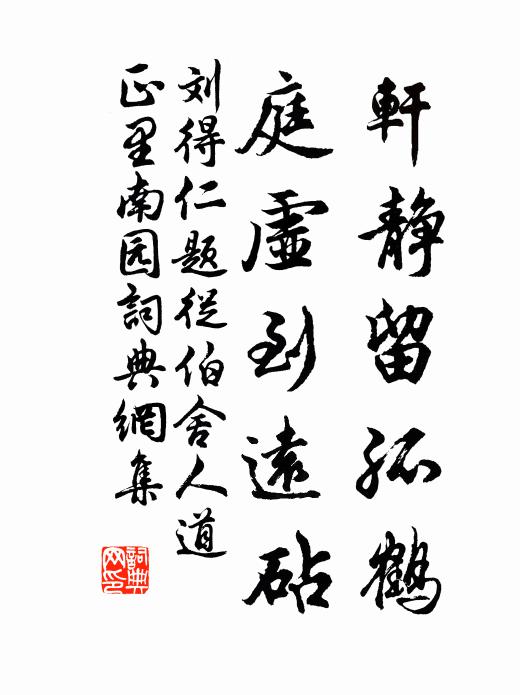 軒静留孤鶴
庭虛到遠砧
刘得仁题從伯舍人道
正里南园詞典網集
詞典
网印